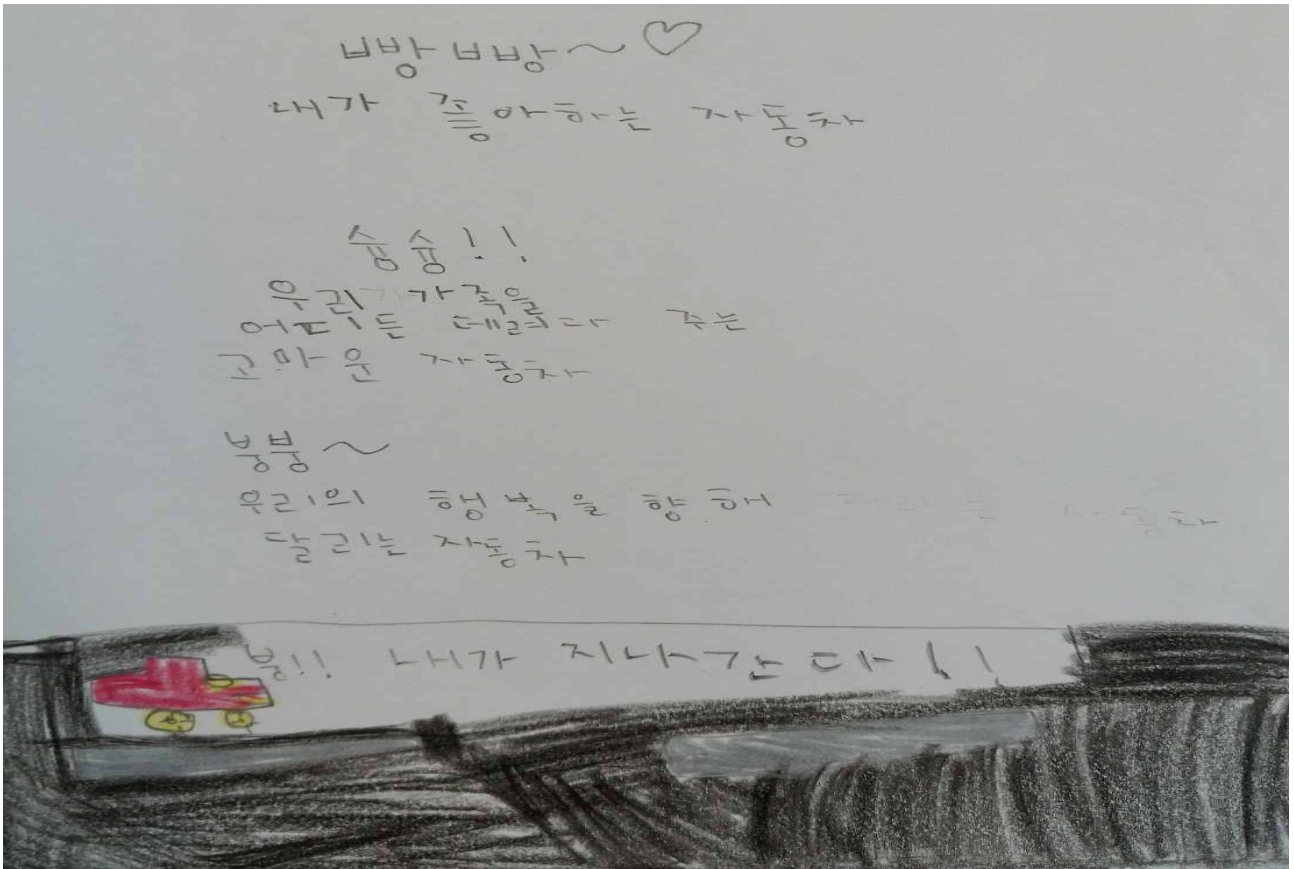 빵빵~♡
내가 죻아하는 자동차
슝슝!!
우리 가족을
어디든 데려다 주는
고마운 자동차
붕붕~
우리의 행복을 향해
달리는 자동차
붕!! 내가 지나간다!!